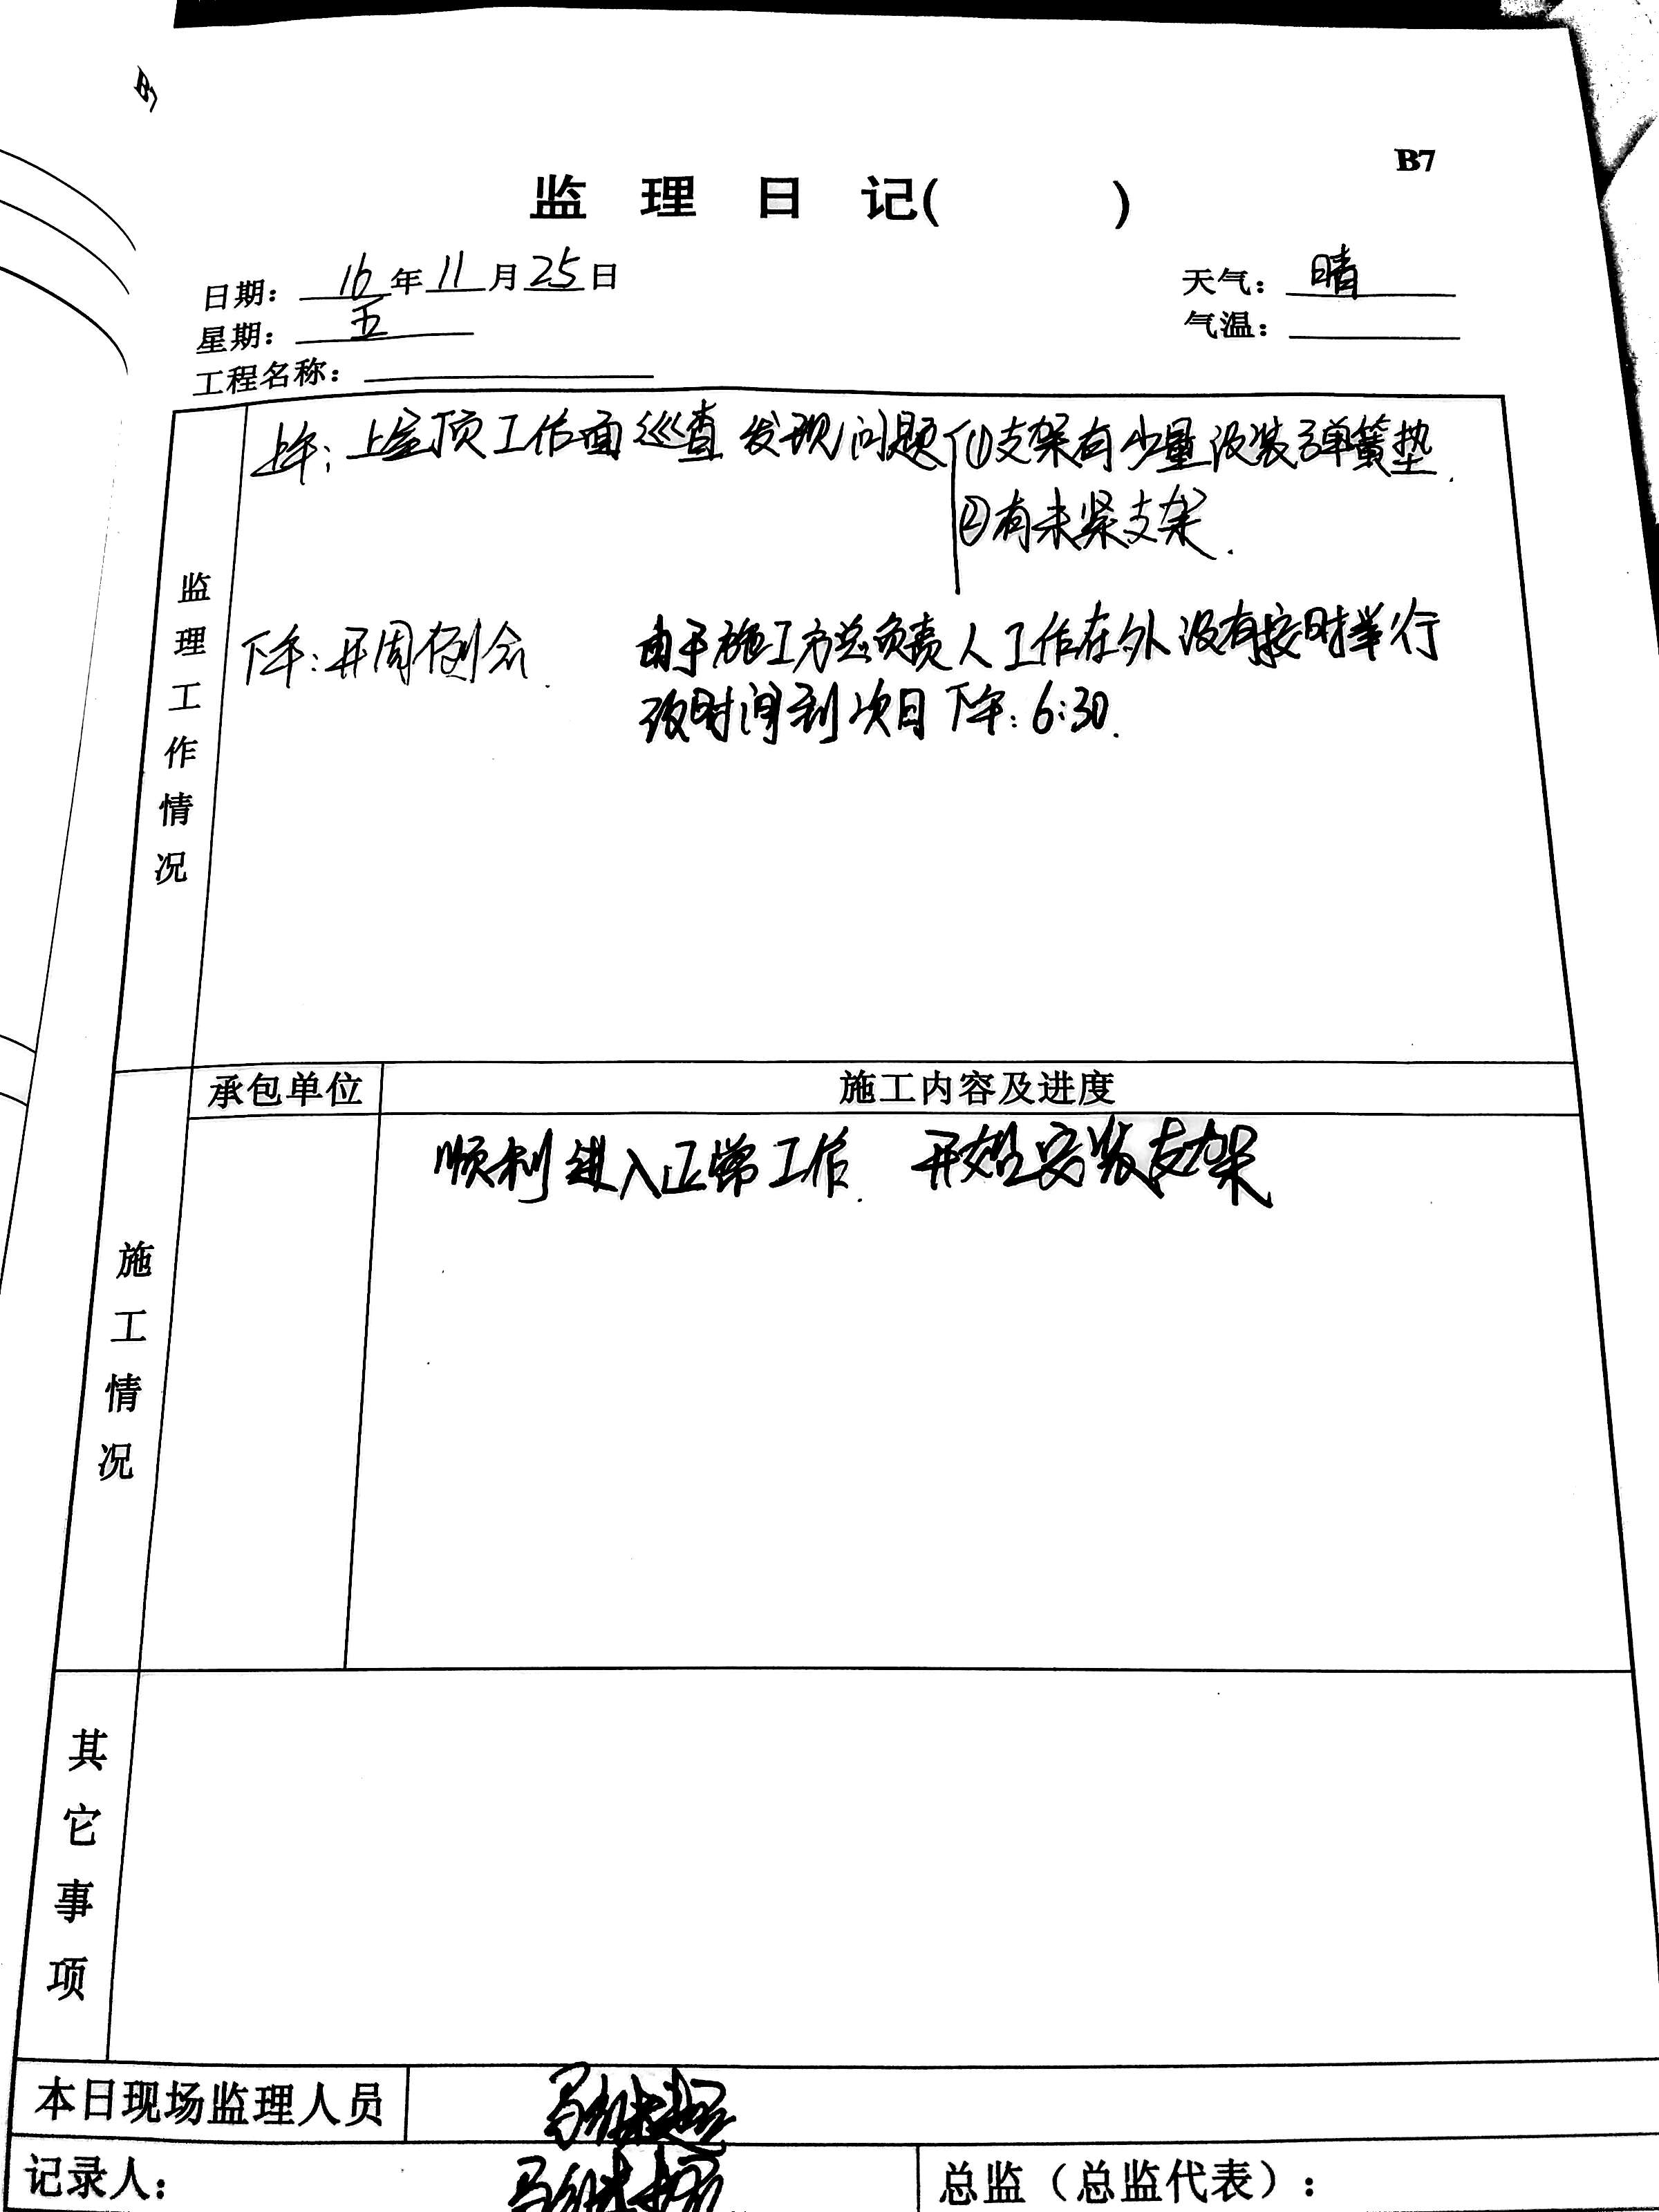 B7
监 理 日 记( )
日期: 16 年 11 月 25 日
天气: 晴
星期: 五
气温:
工程名称:
监理工作情况
上午: 上屋顶工作面巡查 发现问题 ①支架有少量没装弹簧垫.
②有未紧支架.
下午: 开周例会. 由于施工方总负责人工作在外没有按时举行
改时间到次日下午: 6:30.
承包单位
施工内容及进度
施工情况
顺利进入正常工作. 开始安装支架
其它事项
本日现场监理人员
记录人:
总监(总监代表):